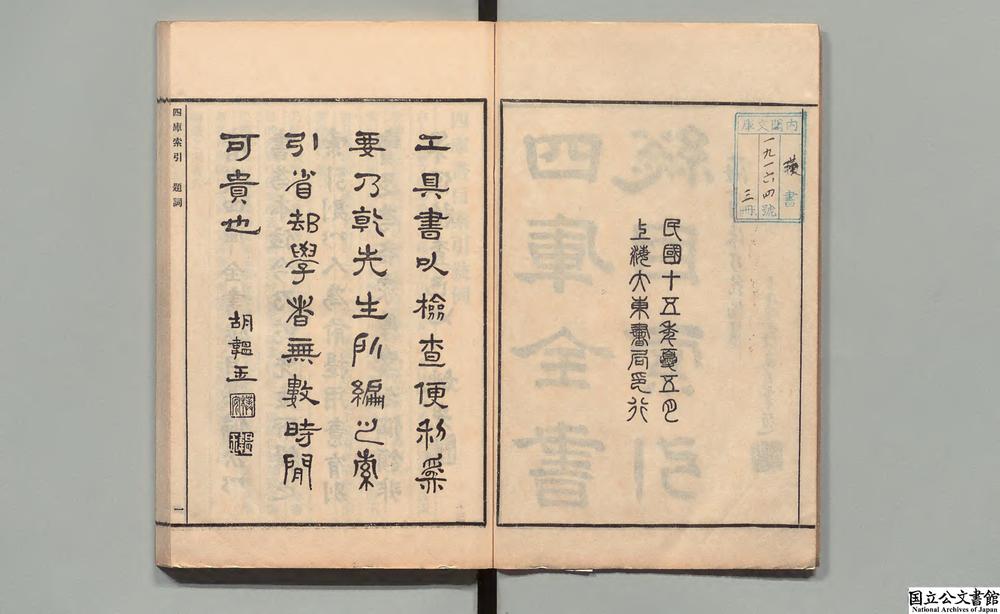 内閣文庫
漢書
一九一六四號
三冊
民國十五年夏五月
上海大東書局印行
工具書以檢查便利爲
要乃乾先生所編之索
引省却學者無數時間
可貴也
胡韞玉
四庫索引 題詞 一
国立公文書館
National Archives of Japan